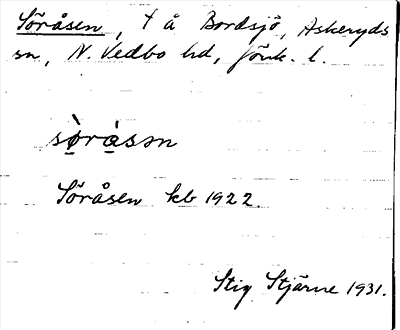 Söråsen, t å Bordsjö, Askeryds
sn, N. Vedbo hd, Jönk. l.
sö̀råsən
Söråsen kb 1922.
Stig Stjärne 1931.